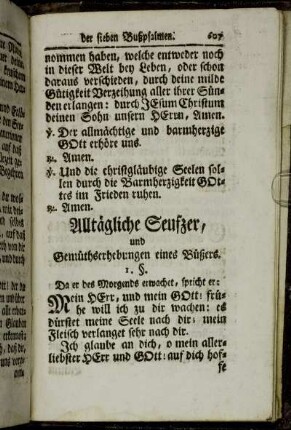 der sieben Bußpsalmen. 607
nommen haben, welche entweder noch
in dieser Welt bey Leben, oder schon
daraus verschieden, durch deine milde
Gütigkeit Verzeihung aller ihrer Sün-
den erlangen: durch JEsum Christum
deinen Sohn unsern HErrn, Amen.
℣. Der allmächtige und barmherzige
GOtt erhöre uns.
℟. Amen.
℣. Und die christgläubige Seelen sol-
len durch die Barmherzigkeit GOt-
tes im Frieden ruhen.
℟. Amen.
Alltägliche Seufzer,
und
Gemüthserhebungen eines Büßers.
1. §.
Da er des Morgends erwachet, spricht er:
Mein HErr, und mein GOtt: frü-
he will ich zu dir wachen: es
dürstet meine Seele nach dir: mein
Fleisch verlanget sehr nach dir.
Ich glaube an dich, o mein aller-
liebster HErr und GOtt: auf dich hof-
fe